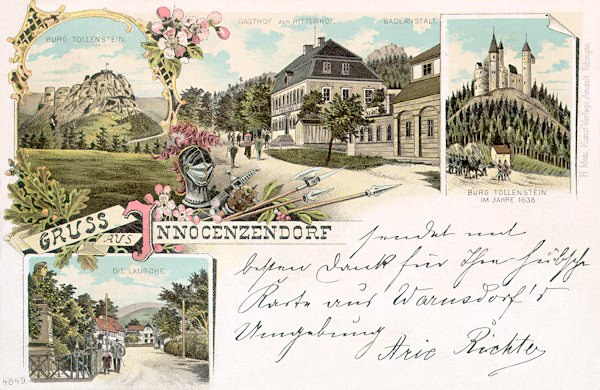 BURG TOLLENSTEIN.
GASTHOF zum RITTERHOF.
BADEANSTALT.
BURG TOLLENSTEIN
IM JAHRE 1638.
H. Metz, Kunst-Verlags-Anstalt, Tübingen
GRUSS AUS INNOCENZENDORF
DIE LAUSCHE.
4849.
sendet mit
besten Dank für Ihre hübsche
Karte aus Warnsdorf's
Umgebung
Richter